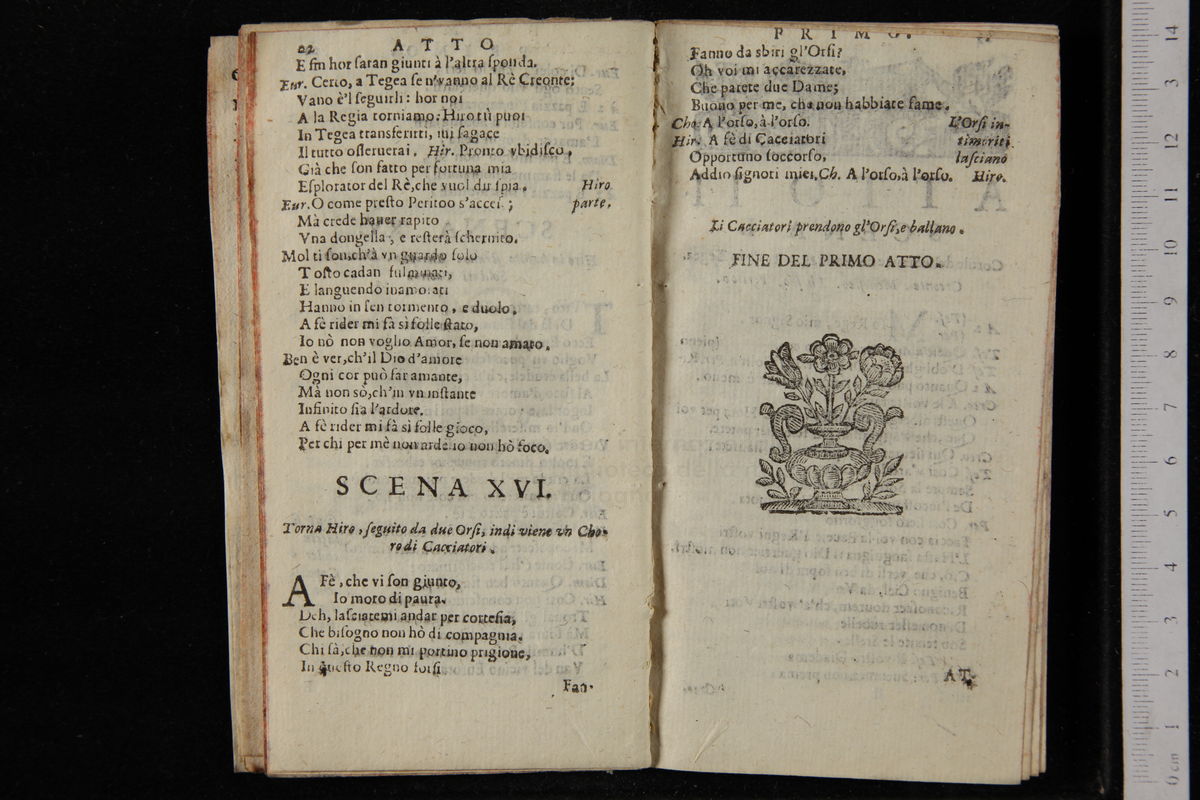 22 ATTO
E ſin hor ſaran giunti à l'altra ſponda.
Eur. Certo, a Tegea ſen'vanno al Rè Creonte;
Vano è'l ſeguirli: hor noi
A la Regia torniamo: Hiro tù puoi
In Tegea transferirti, iui ſagace
Il tutto oſſeruerai. Hir. Pronto vbidiſco.
Già che ſon fatto per fortuna mia
Eſplorator del Rè, che vuol dir ſpia. Hiro
Eur. O come preſto Peritoo s'acceſe; parte.
Mà crede hauer rapito
Vna dongella, e reſterà ſchernito.
Molti ſon, ch'à vn guardo ſolo
Toſto cadan fulminati,
E languendo inamorati
Hanno in ſen tormento, e duolo.
A fè rider mi fà sì folle ſtato,
Io nò non voglio Amor, ſe non amato.
Ben è ver, ch'il Dio d'amore
Ogni cor può far amante,
Mà non sò, ch'in vn inſtante
Infinito ſia l'ardore.
A fè rider mi fà sì folle gioco,
Per chi per mè non arde io non hò foco.
SCENA XVI.
Torna Hiro, ſeguito da due Orſi, indi viene vn Cho-
ro di Cacciatori.
A Fè, che vi ſon giunto,
Io moro di paura.
Deh, laſciatemi andar per corteſia,
Che biſogno non hò di compagnia.
Chi sà, che non mi portino prigione,
In queſto Regno forſi
Fan-
PRIMO.
Fanno da sbiri gl'Orſi?
Oh voi mi accarezzate,
Che parete due Dame;
Buono per me, che non habbiate fame.
Cho. A l'orſo, à l'orſo. L'Orſi in-
Hir. A fè di Cacciatori timoriti
Opportuno ſoccorſo, laſciano
Addio ſignori miei, Ch. A l'orſo, à l'orſo. Hiro.
Li Cacciatori prendono gl'Orſi, e ballano.
FINE DEL PRIMO ATTO.
AT-
14
13
12
11
10
9
8
7
6
5
4
3
2
1
0 cm